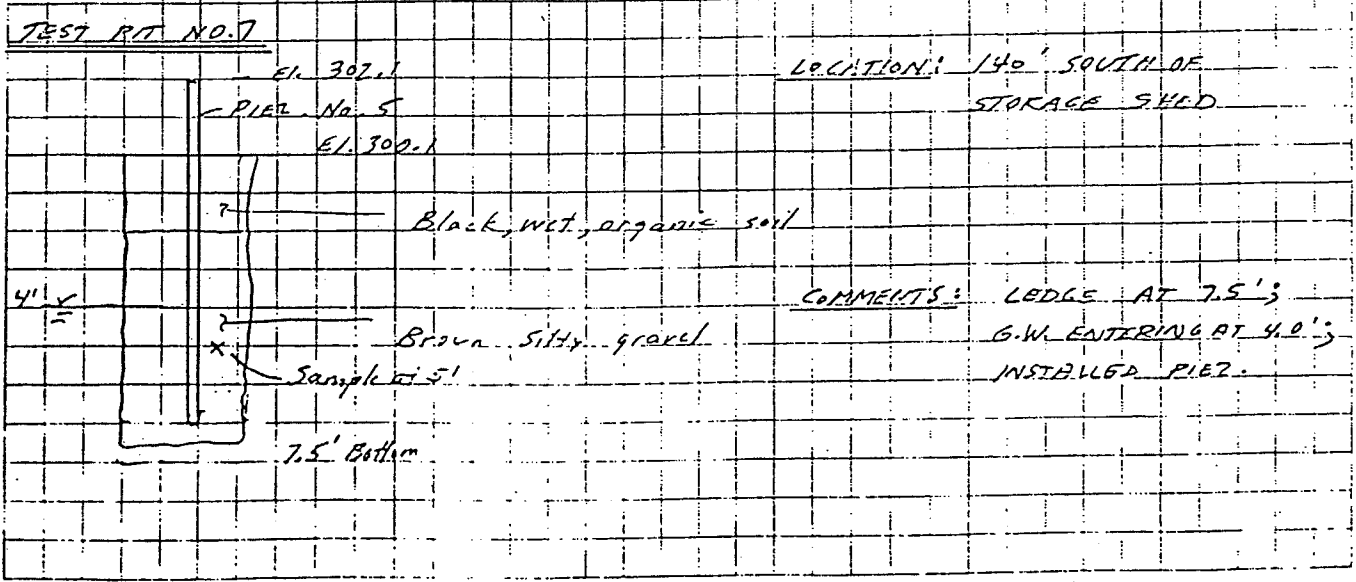 TEST PIT NO.7
El. 302.1
PIEZ. No. 5
El. 300.1
Black, wet, organic soil
4'
Brown silty gravel
Sample at 5'
7.5' Bottom
LOCATION: 140' SOUTH OF
STORAGE SHED
COMMENTS: LEDGE AT 7.5';
G.W. ENTERING AT 4.0';
INSTALLED PIEZ.